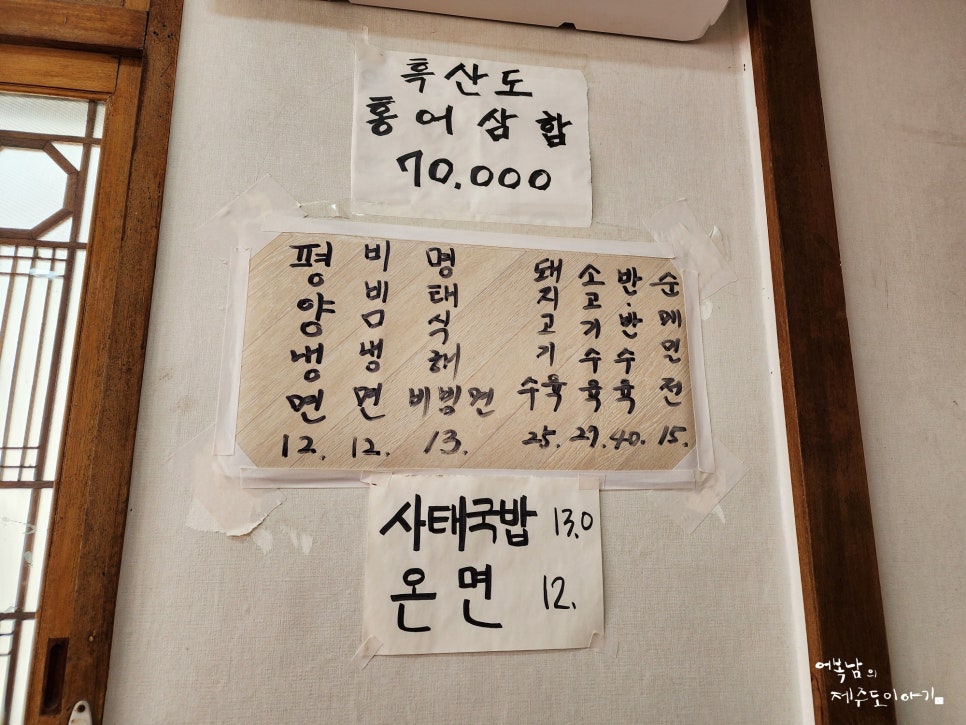 흑산도
홍어삼합
70.000
평양냉면 12.
비빔냉면 12.
명태식해 비빔면 13.
돼지고기 수육 25.
소고기수육 27.
반·반수육 40.
순메밀전 15.
사태국밥 13.0
온면 12.
어복남의
제주도이야기